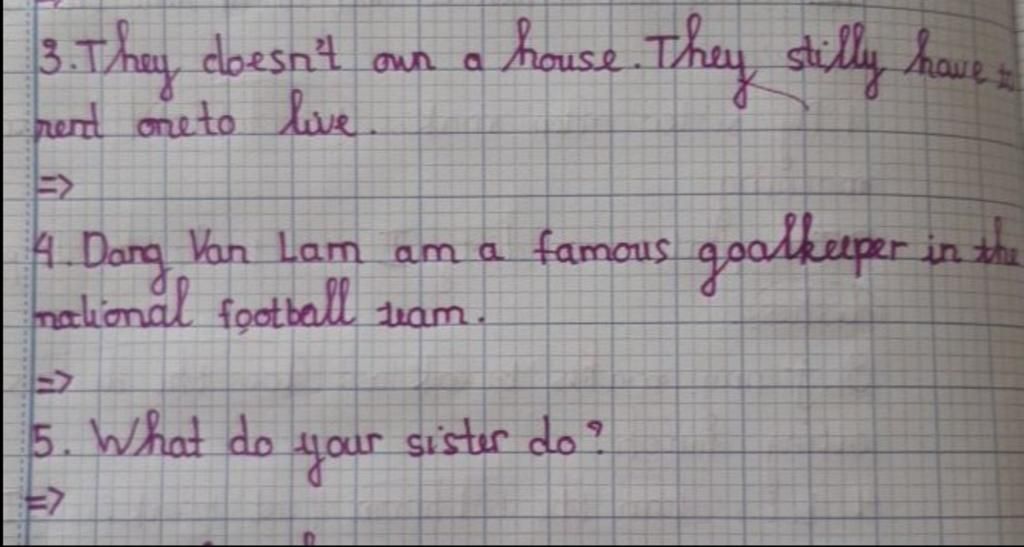 3. They doesn't own a house. They stilly have
rent one to live.
=>
4. Dang Van Lam am a famous goalkeeper in the
national football team.
=>
5. What do your sister do?
=>